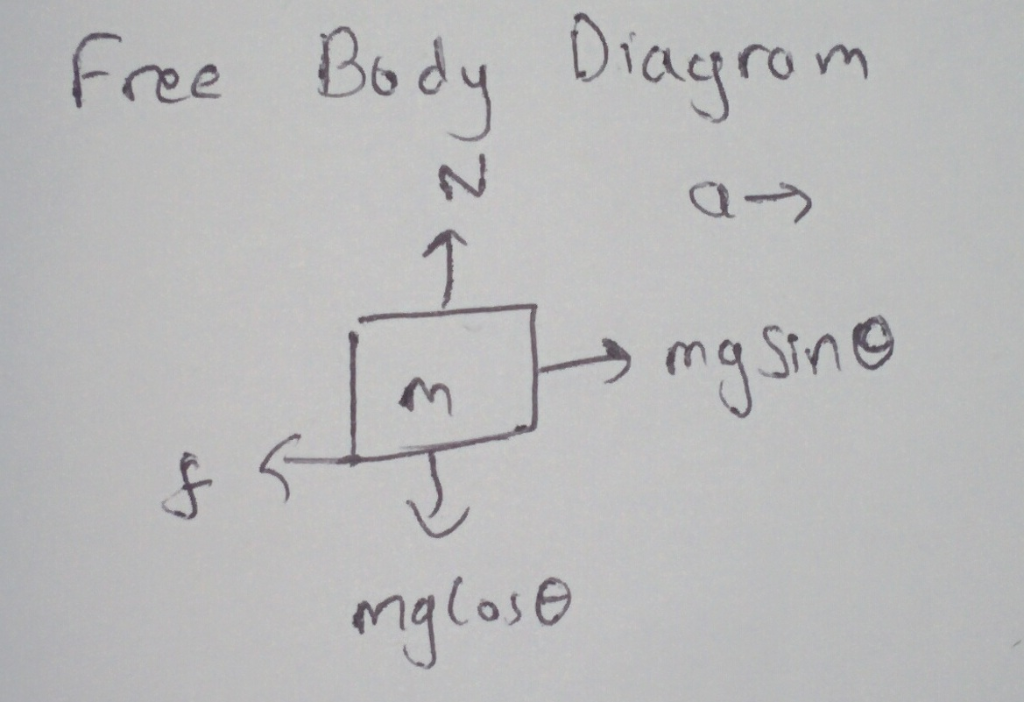 Free Body Diagram
N
a→
m
mgsinθ
f
mgcosθ